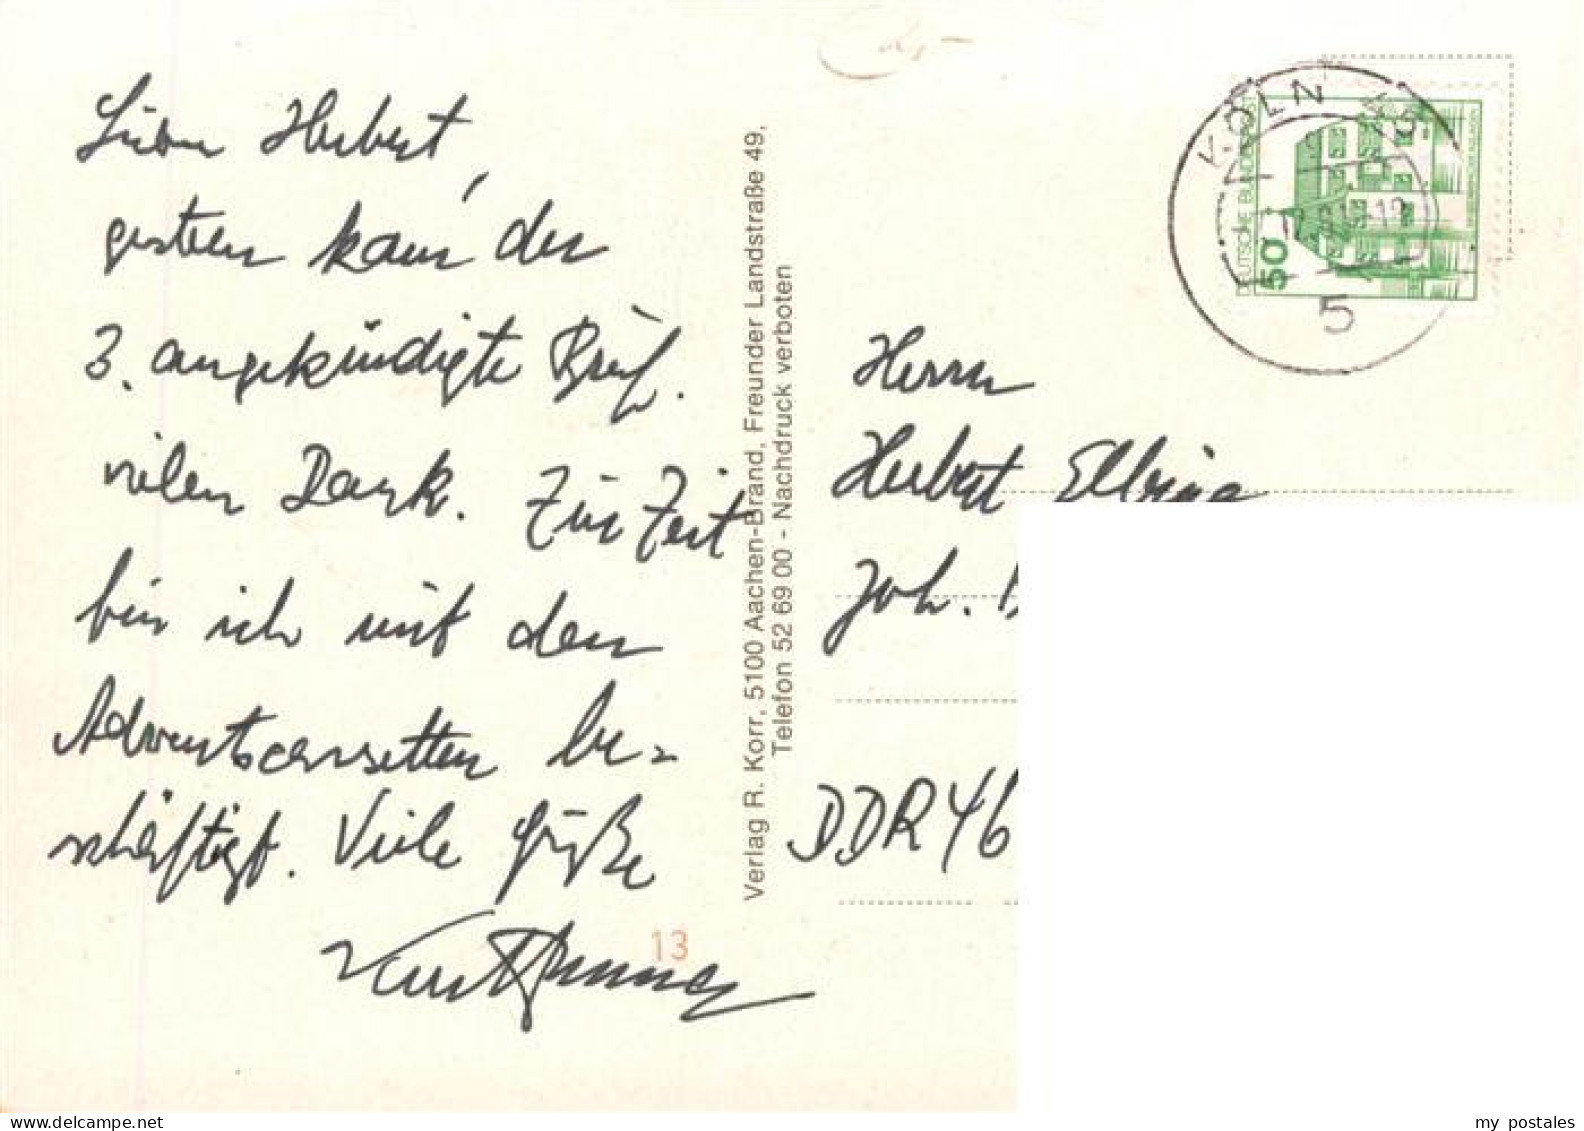 Lieber Herbert,
gestern kam der
3. angekündigte Brief.
vielen Dank. Zur Zeit
bin ich mit den
Adventscassetten be-
schäftigt. Viele Grüße
Kurt
13
Verlag R. Korr, 5100 Aachen-Brand, Freunder Landstraße 49,
Telefon 52 69 00 - Nachdruck verboten
KÖLN
5
DEUTSCHE BUNDESPOST
50
Herrn
Herbert
Joh.
DDR 46
my postales